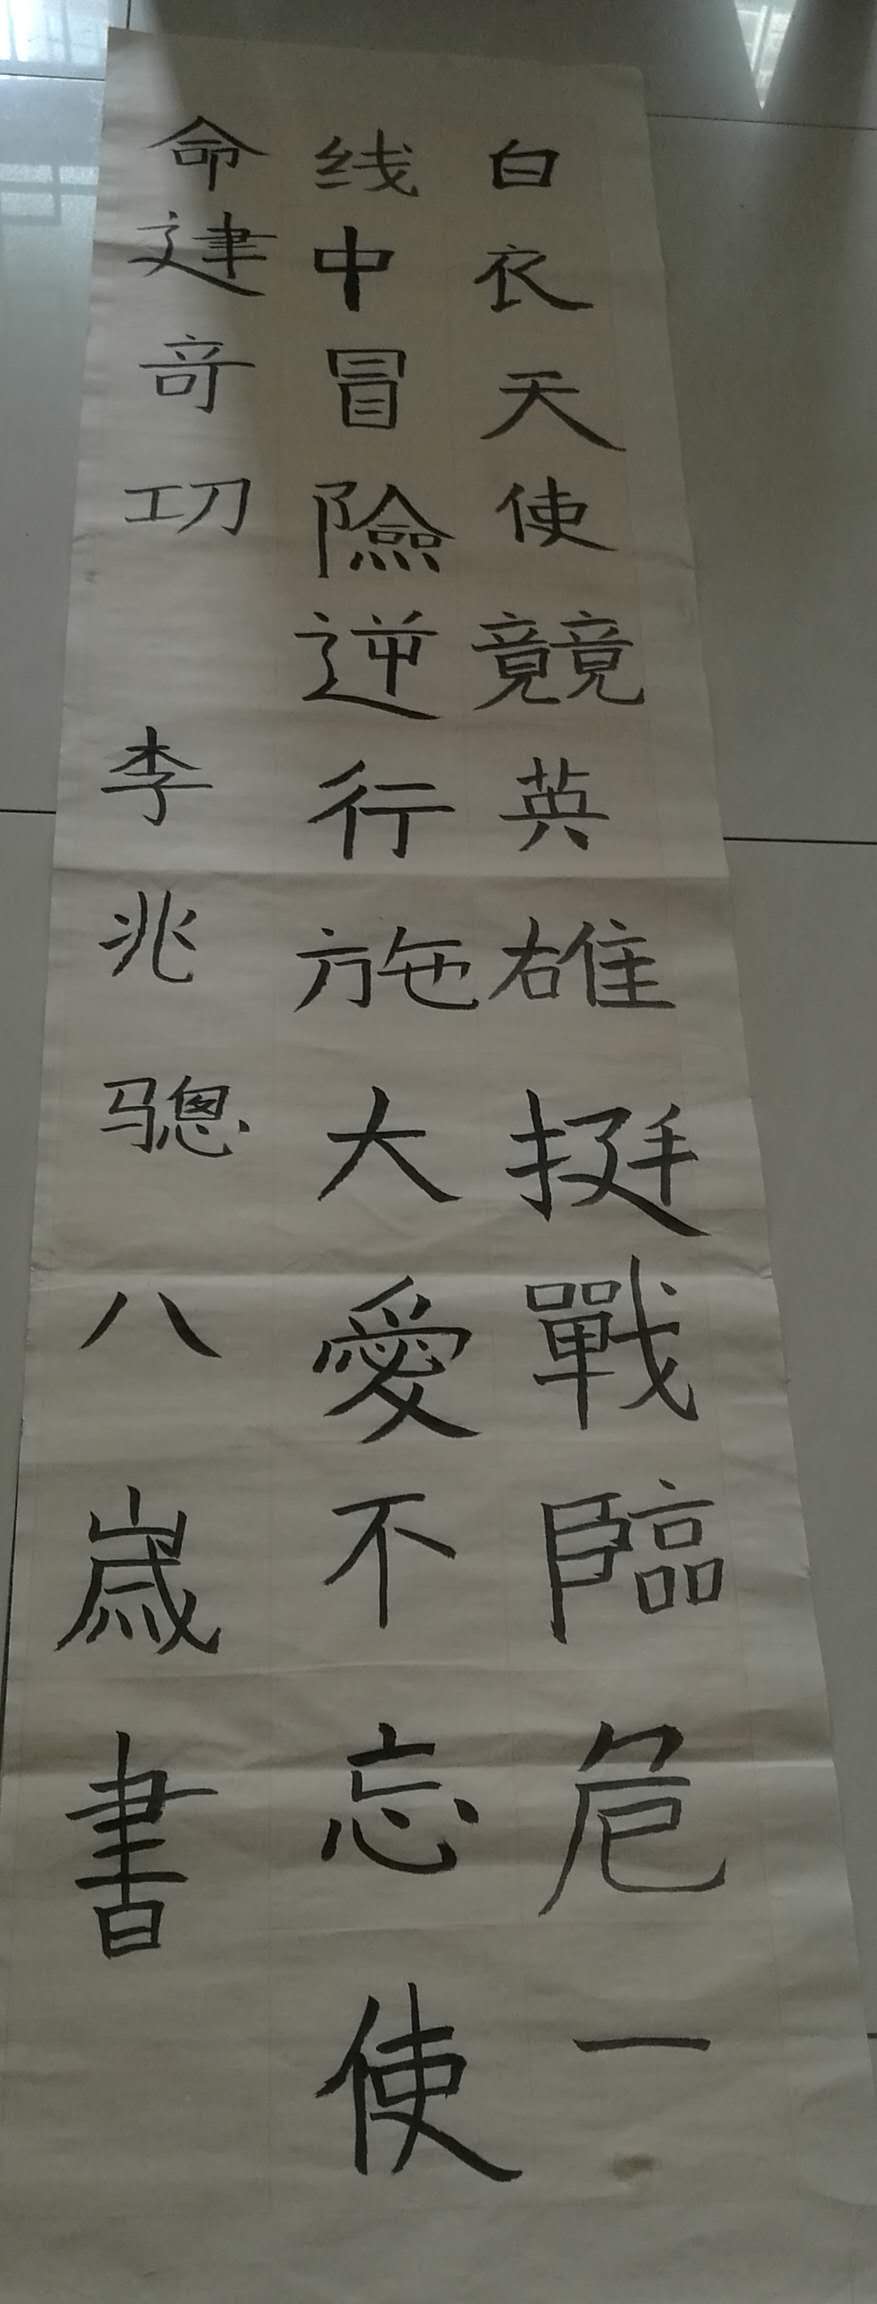 白衣天使競英雄挺戰臨危一
线中冒險逆行施大愛不忘使
命建奇功 李兆骢八歲書